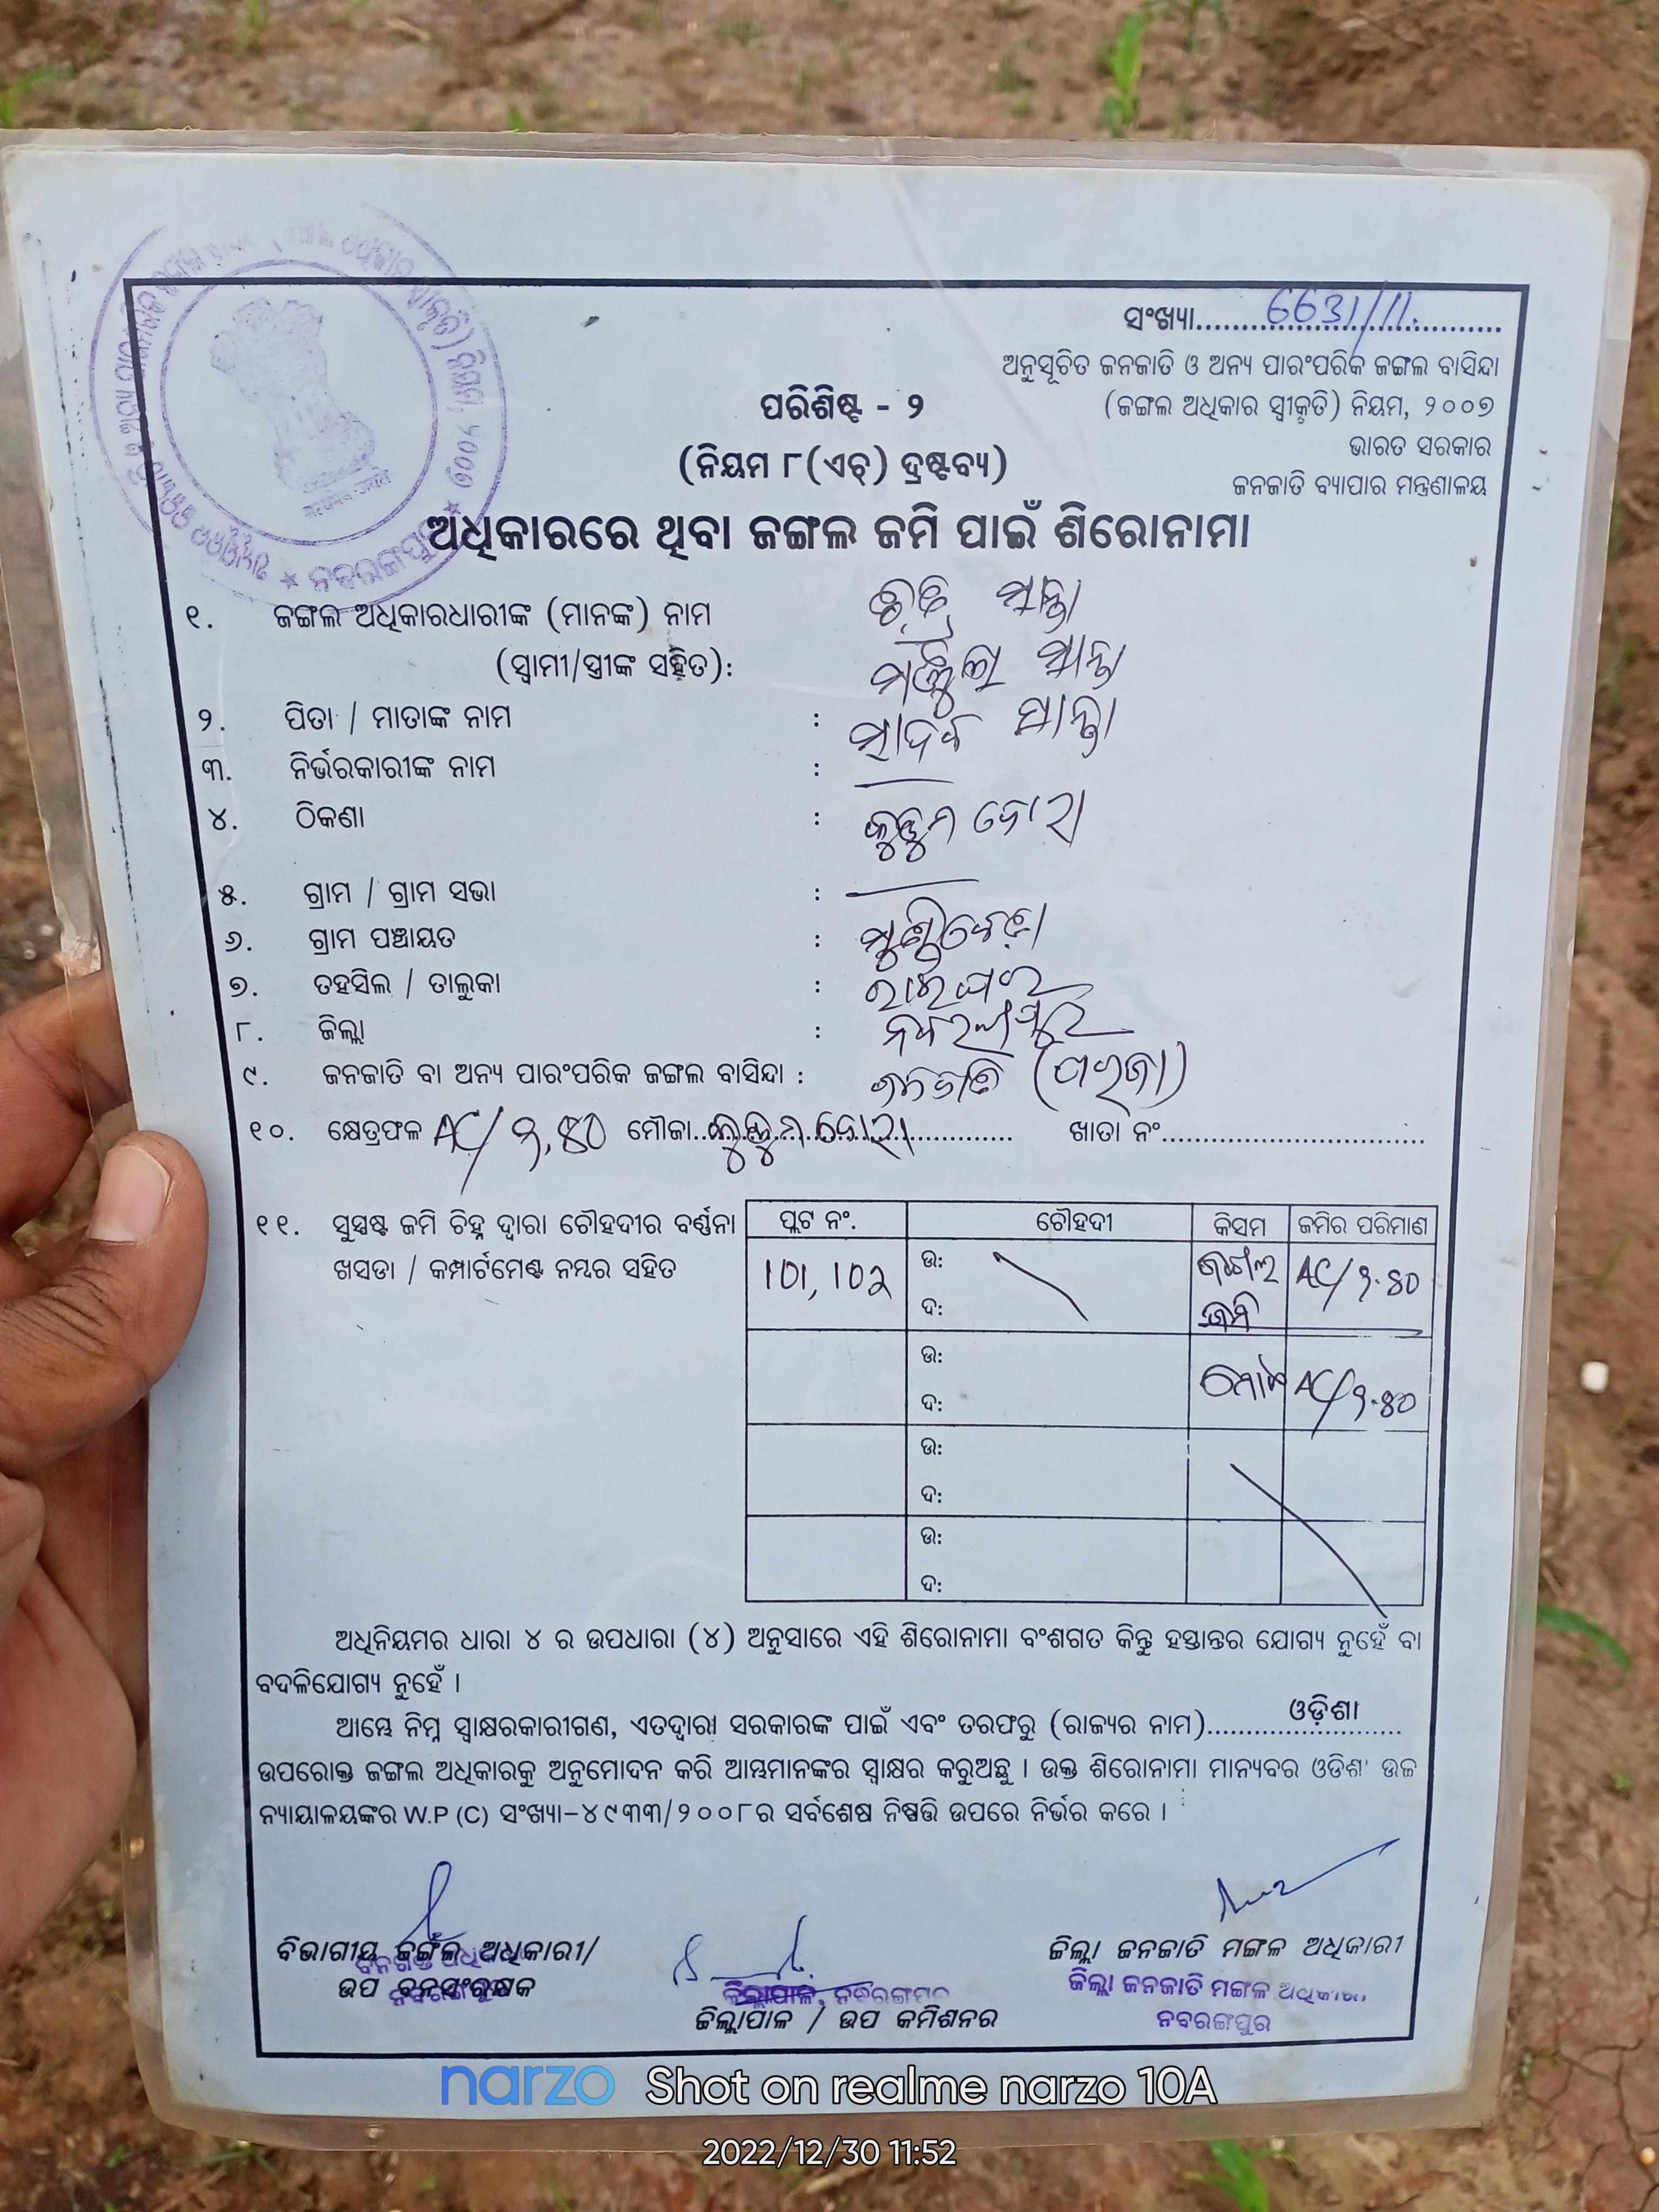 ସଂଖ୍ୟା.......6631/11.
ଅନୁସୂଚିତ ଜନଜାତି ଓ ଅନ୍ୟ ପାରଂପରିକ ଜଙ୍ଗଲ ବାସିନ୍ଦା
(ଜଙ୍ଗଲ ଅଧିକାର ସ୍ୱୀକୃତି) ନିୟମ, ୨୦୦୭
ଭାରତ ସରକାର
ଜନଜାତି ବ୍ୟାପାର ମନ୍ତ୍ରଣାଳୟ
ପରିଶିଷ୍ଟ - ୨
(ନିୟମ ୮(ଏଚ୍) ଦ୍ରଷ୍ଟବ୍ୟ)
ଅଧିକାରରେ ଥିବା ଜଙ୍ଗଲ ଜମି ପାଇଁ ଶିରୋନାମା
୧. ଜଙ୍ଗଲ ଅଧିକାରଧାରୀଙ୍କ (ମାନଙ୍କ) ନାମ
(ସ୍ୱାମୀ/ସ୍ତ୍ରୀଙ୍କ ସହିତ):
୨. ପିତା / ମାତାଙ୍କ ନାମ :
୩. ନିର୍ଭରକାରୀଙ୍କ ନାମ :
୪. ଠିକଣା :
୫. ଗ୍ରାମ / ଗ୍ରାମ ସଭା :
୬. ଗ୍ରାମ ପଞ୍ଚାୟତ :
୭. ତହସିଲ / ତାଲୁକା : ରାଇଘର
୮. ଜିଲ୍ଲା : ନବରଙ୍ଗପୁର
୯. ଜନଜାତି ବା ଅନ୍ୟ ପାରଂପରିକ ଜଙ୍ଗଲ ବାସିନ୍ଦା : ଜନଜାତି (ପରଜା)
୧୦. କ୍ଷେତ୍ରଫଳ AC/ ୨.୫୦ ମୌଜା....... ଖାତା ନଂ.......
୧୧. ସୁସ୍ପଷ୍ଟ ଜମି ଚିହ୍ନ ଦ୍ୱାରା ଚୌହଦୀର ବର୍ଣ୍ଣନା
ଖସଡା / କମ୍ପାର୍ଟମେଣ୍ଟ ନମ୍ବର ସହିତ
ପ୍ଲଟ ନଂ. ଚୌହଦୀ କିସମ ଜମିର ପରିମାଣ
101, 102 ଉ: ଜଙ୍ଗଲ AC/ ୨.୫୦
ଦ: ଜମି
ଉ: ମୋଟ AC/ ୨.୫୦
ଦ:
ଉ:
ଦ:
ଉ:
ଦ:
ଅଧିନିୟମର ଧାରା ୪ ର ଉପଧାରା (୪) ଅନୁସାରେ ଏହି ଶିରୋନାମା ବଂଶଗତ କିନ୍ତୁ ହସ୍ତାନ୍ତର ଯୋଗ୍ୟ ନୁହେଁ ବା
ବଦଳିଯୋଗ୍ୟ ନୁହେଁ ।
ଆମ୍ଭେ ନିମ୍ନ ସ୍ୱାକ୍ଷରକାରୀଗଣ, ଏତଦ୍ୱାରା ସରକାରଙ୍କ ପାଇଁ ଏବଂ ତରଫରୁ (ରାଜ୍ୟର ନାମ).......ଓଡ଼ିଶା.......
ଉପରୋକ୍ତ ଜଙ୍ଗଲ ଅଧିକାରକୁ ଅନୁମୋଦନ କରି ଆମ୍ଭମାନଙ୍କର ସ୍ୱାକ୍ଷର କରୁଅଛୁ । ଉକ୍ତ ଶିରୋନାମା ମାନ୍ୟବର ଓଡିଶା ଉଚ୍ଚ
ନ୍ୟାୟାଳୟଙ୍କର W.P (C) ସଂଖ୍ୟା-୪୯୩୩/୨୦୦୮ର ସର୍ବଶେଷ ନିଷ୍ପତ୍ତି ଉପରେ ନିର୍ଭର କରେ ।
ବିଭାଗୀୟ ଜଙ୍ଗଲ ଅଧିକାରୀ/
ଉପ ବନସଂରକ୍ଷକ
ଜିଲ୍ଲାପାଳ, ନବରଙ୍ଗପୁର
ଜିଲ୍ଲାପାଳ / ଉପ କମିଶନର
ଜିଲ୍ଲା ଜନଜାତି ମଙ୍ଗଳ ଅଧିକାରୀ
ଜିଲ୍ଲା ଜନଜାତି ମଙ୍ଗଳ ଅଧିକାରୀ
ନବରଙ୍ଗପୁର
narzo Shot on realme narzo 10A
2022/12/30 11:52